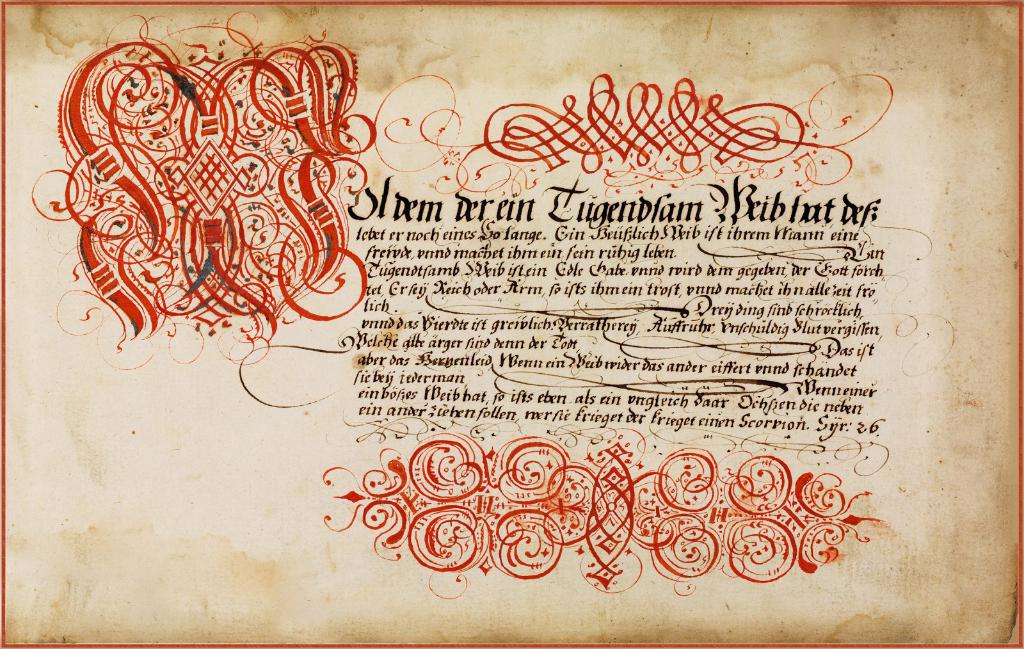 Wol dem der ein Tugendsam Weib hat deß
lebet er noch eines So lange. Ein Heüßlich Weib ist ihrem Mann eine
freẅde, vnnd machet ihm ein fein rühig leben. Ein
Tugendtsamb Weib ist ein Edle Gabe, vnnd wird dem gegeben, der Gott förch
tet, Er seÿ Reich oder Arm, so ists ihm ein trost, vnnd machet ihn alle zeit frö
lich. Dreÿ ding sind schröcklich,
vnnd das Vierdte ist greẅlich, Verrätherey, Auffruhr, vnschüldig Blut vergissen,
Welche alle ärger sind denn der Todt, Das ist
aber das Hertzenleid, Wenn ein Weib wider das ander eiffert vnnd schändet
sie beÿ iederman, Wenn einer
ein böses Weib hat, so ists eben als ein vngleich Paar Ochssen die neben
ein ander ziehen sollen, wer sie krieget der krieget einen Scorpion. Syr: 26.